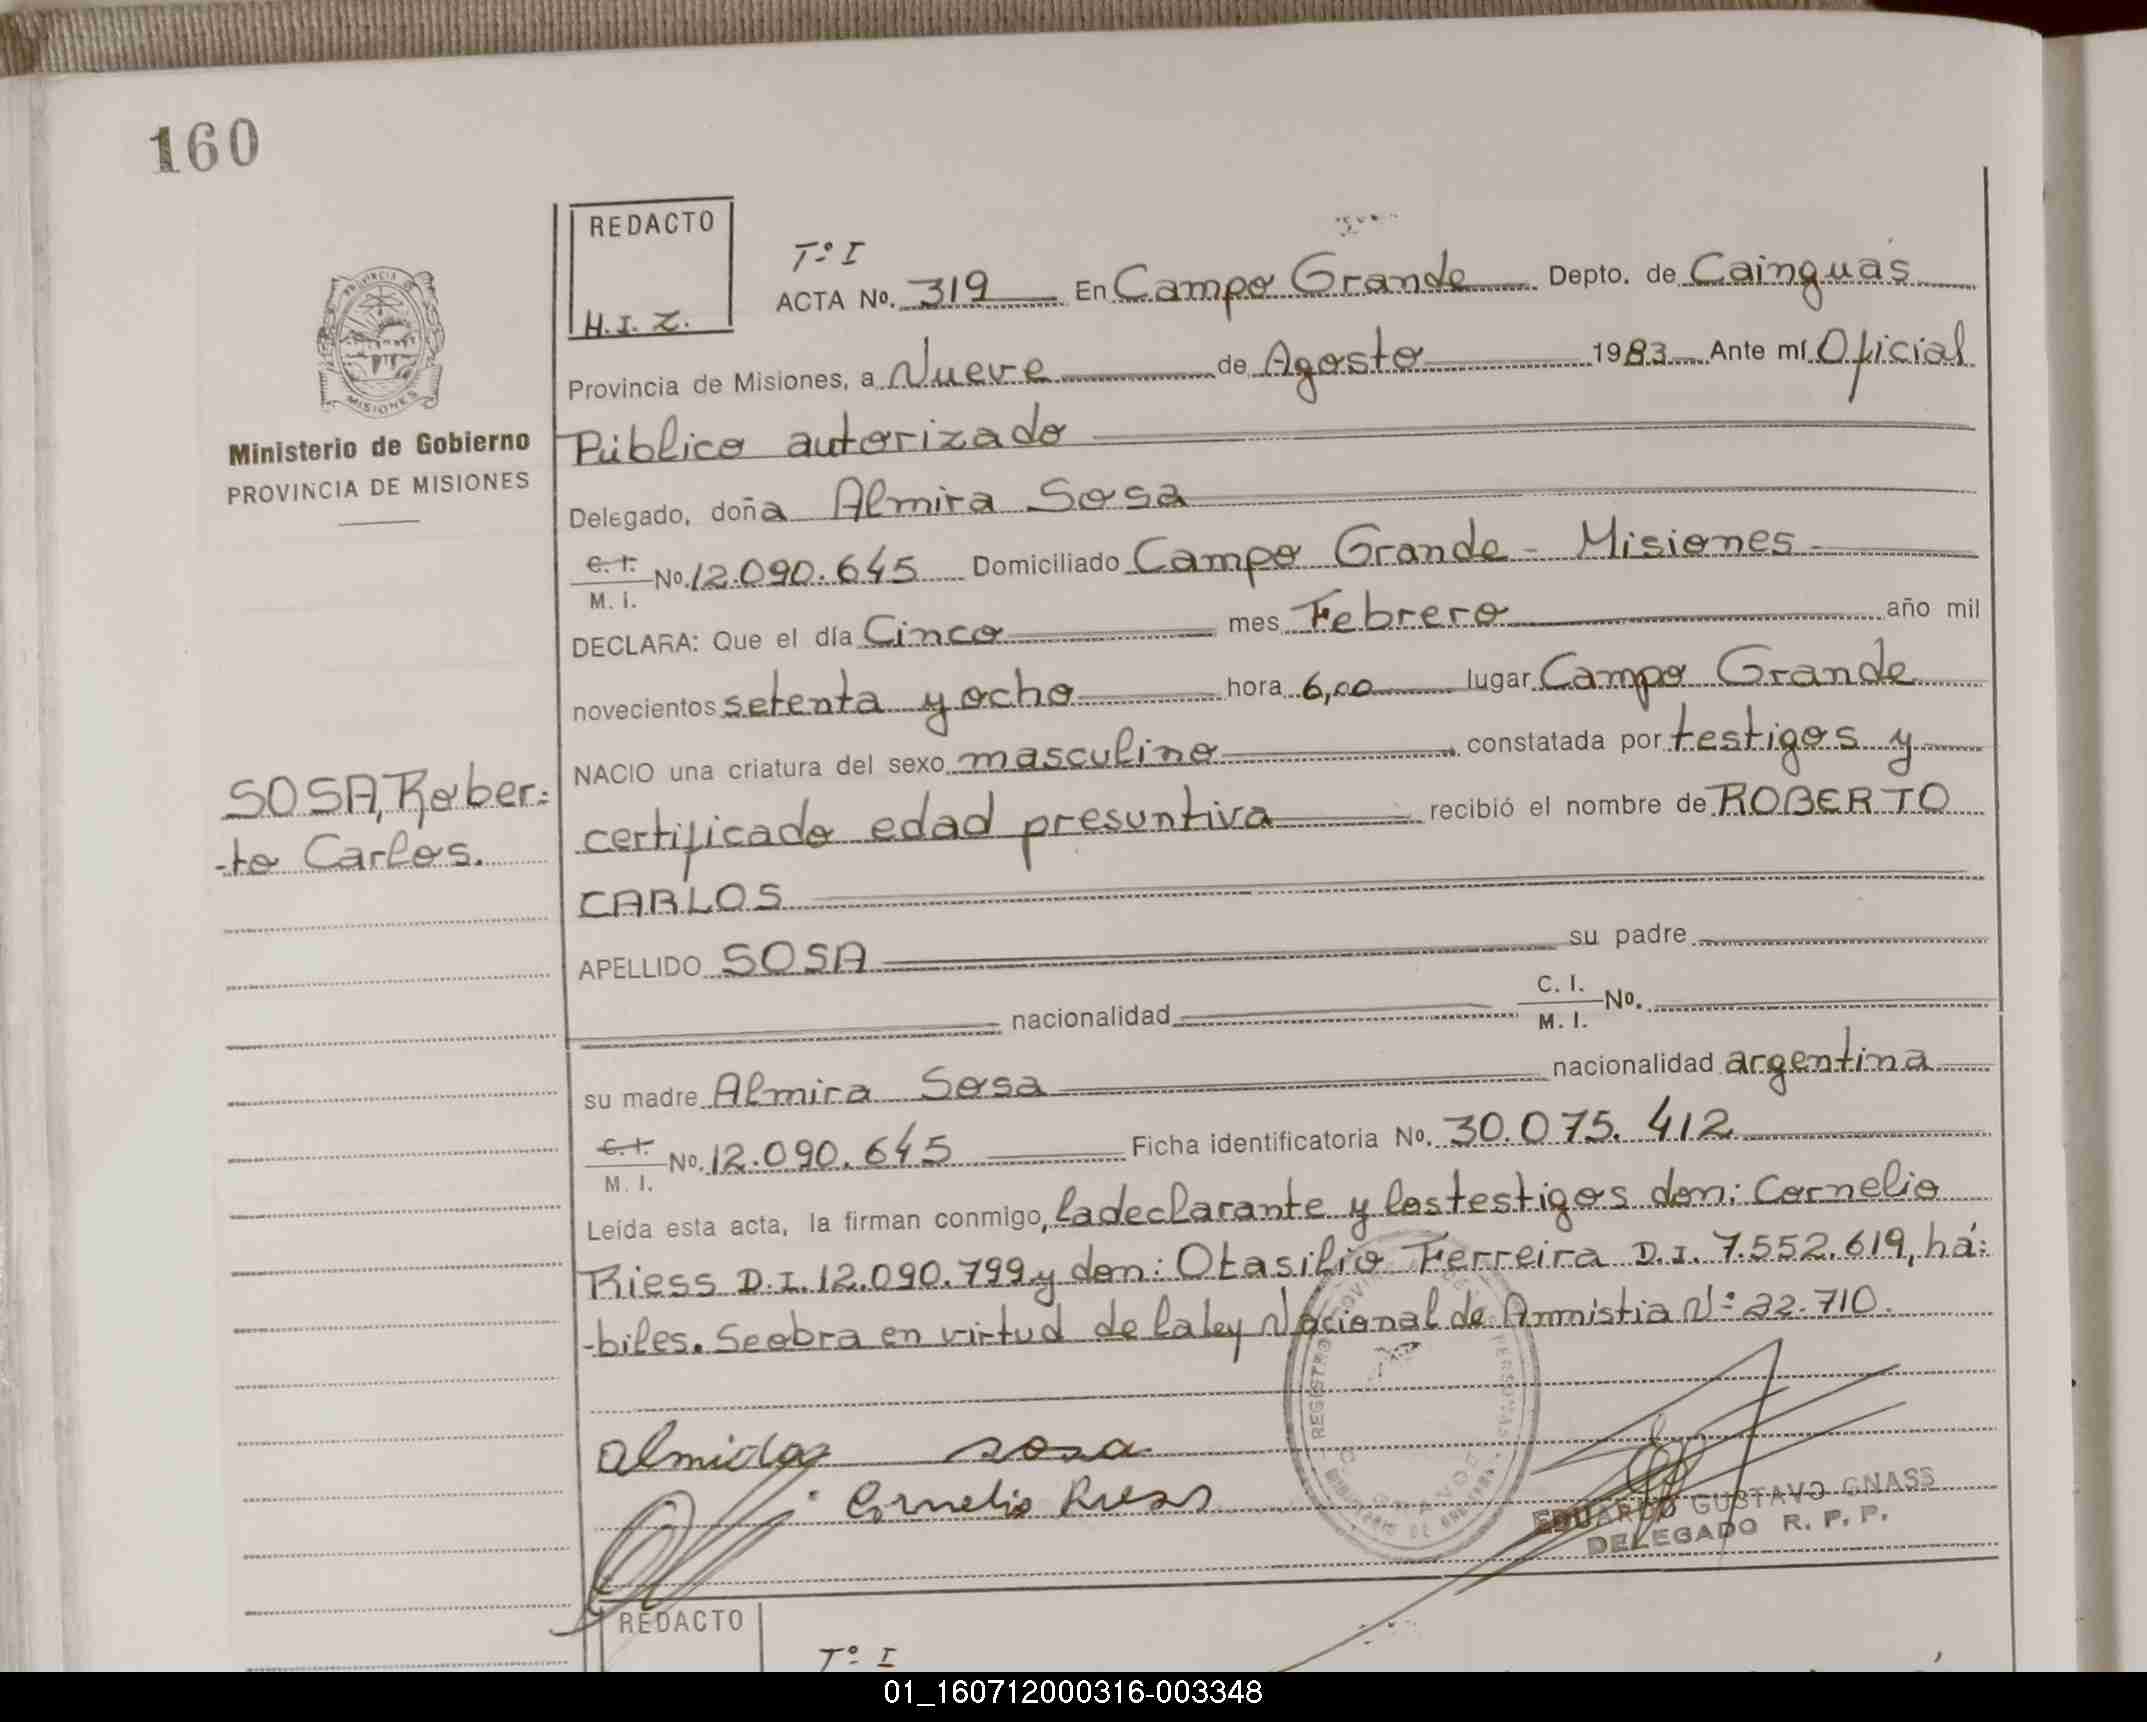 160
REDACTO
H. I. Z.
Tº I
ACTA No. 319 En Campo Grande Depto. de Cainguás
Provincia de Misiones, a Nueve de Agosto 1983 Ante mí Oficial
Público autorizado
Delegado, doña Almira Sosa
C. I.
M. I. No. 12.090.645 Domiciliado Campo Grande - Misiones -
DECLARA: Que el día Cinco mes Febrero año mil
novecientos setenta y ocho hora 6,00 lugar Campo Grande
NACIO una criatura del sexo masculino constatada por testigos y
certificado edad presuntiva recibió el nombre de ROBERTO
CARLOS
APELLIDO SOSA su padre
nacionalidad C. I.
M. I. No.
su madre Almira Sosa nacionalidad argentina
C. I.
M. I. No. 12.090.645 Ficha identificatoria No. 30.075.412
Leída esta acta, la firman conmigo, la declarante y los testigos don: Cornelio
Riess D.I. 12.090.799 y don: Otasilio Ferreira D.I. 7.552.619, há:
-biles. Se obra en virtud de la ley Nacional de Amnistia Nº 22.710.
Ministerio de Gobierno
PROVINCIA DE MISIONES
SOSA, Rober=
-to Carlos.
PROVINCIA
MISIONES
sosa
Cornelio Riess
REGISTRO
EDUARDO GUSTAVO GNASS
DELEGADO R. P. P.
REDACTO
Tº I
01_160712000316-003348